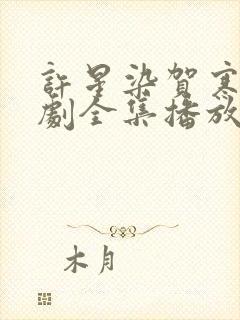 許星染賀寒
劇全集播放
木月